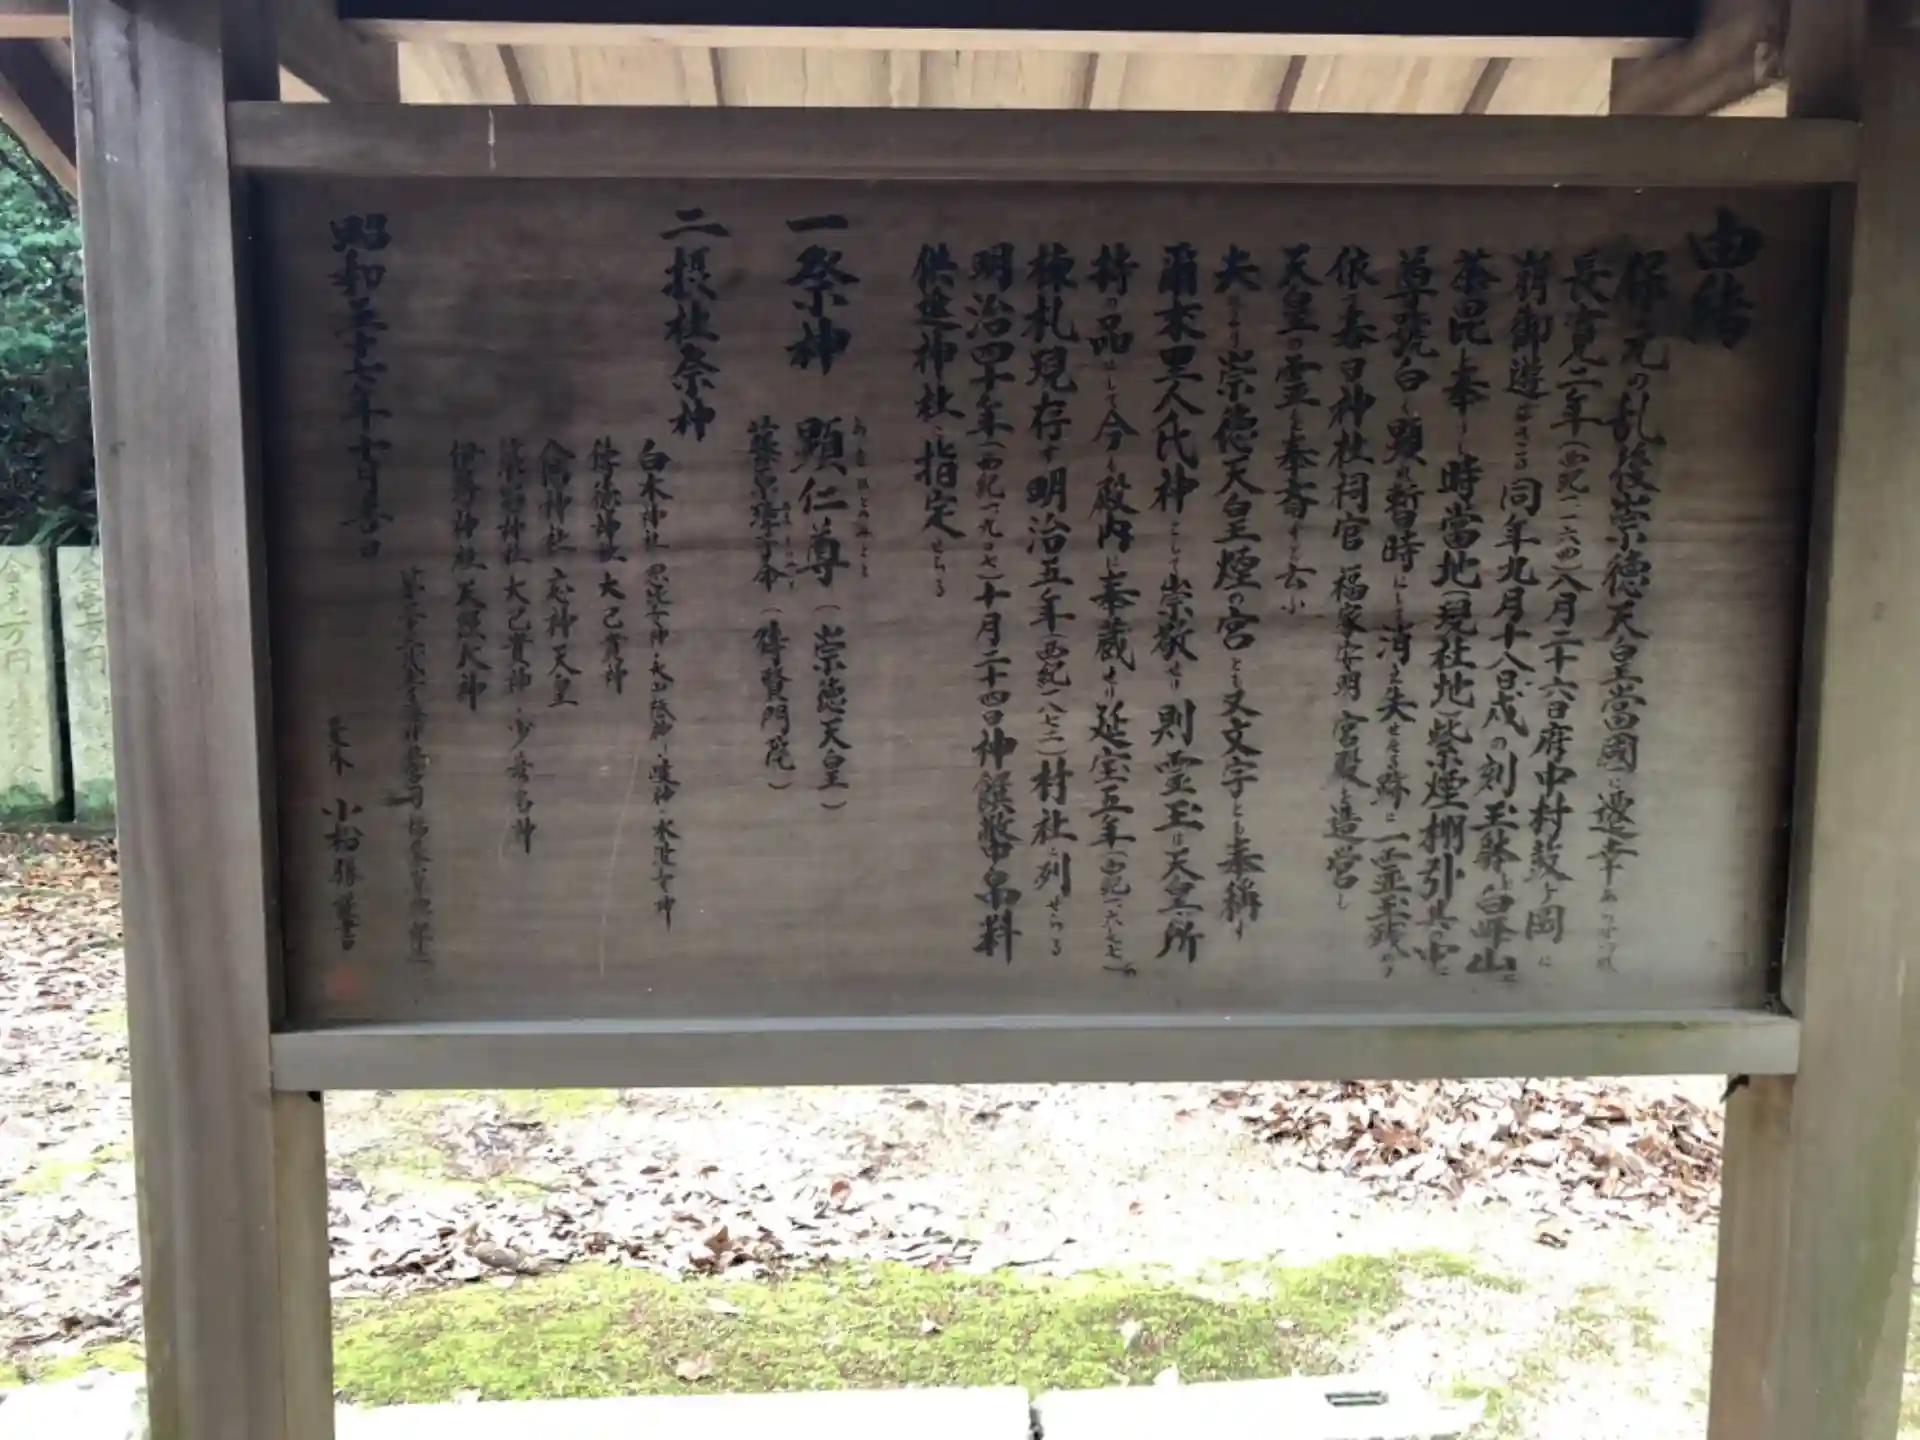 由緒
保元の乱後崇徳天皇當國に遷幸あ
長寛二年(西紀一一六四)八月二十六日府中村鼓ヶ岡に
崩御遊ばさる同年九月十八日戍の刻玉躰を白峰山に
荼毘し奉りし時當地(現社地)紫煙棚引其の中に
尊號白く顕れ暫時にして消え失せたる跡に一霊玉残
依て春日神社祠官福家安明宮殿を造営し
天皇の霊を奉斎すと云ふ
夫より崇徳天皇煙の宮とも又文字とも奉稱す
爾来里人氏神として崇敬せり則霊玉は天皇所
持の品にして今も殿内に奉蔵せり延宝五年(西紀一六七七)の
棟札現存す明治五年(西紀一八七二)村社に列せらる
明治四十年(西紀一九〇七)十月二十四日神饌幣帛料
供進神社に指定せらる
一祭神 顕仁尊(崇徳天皇)
藤原璋子命(待賢門院)
二摂社祭神
白木神社
大己貴神
神社 応神天皇
神社 大己貴神・少彦名神
伊勢神社 天照大神
昭和三十七年十月吉日
小松